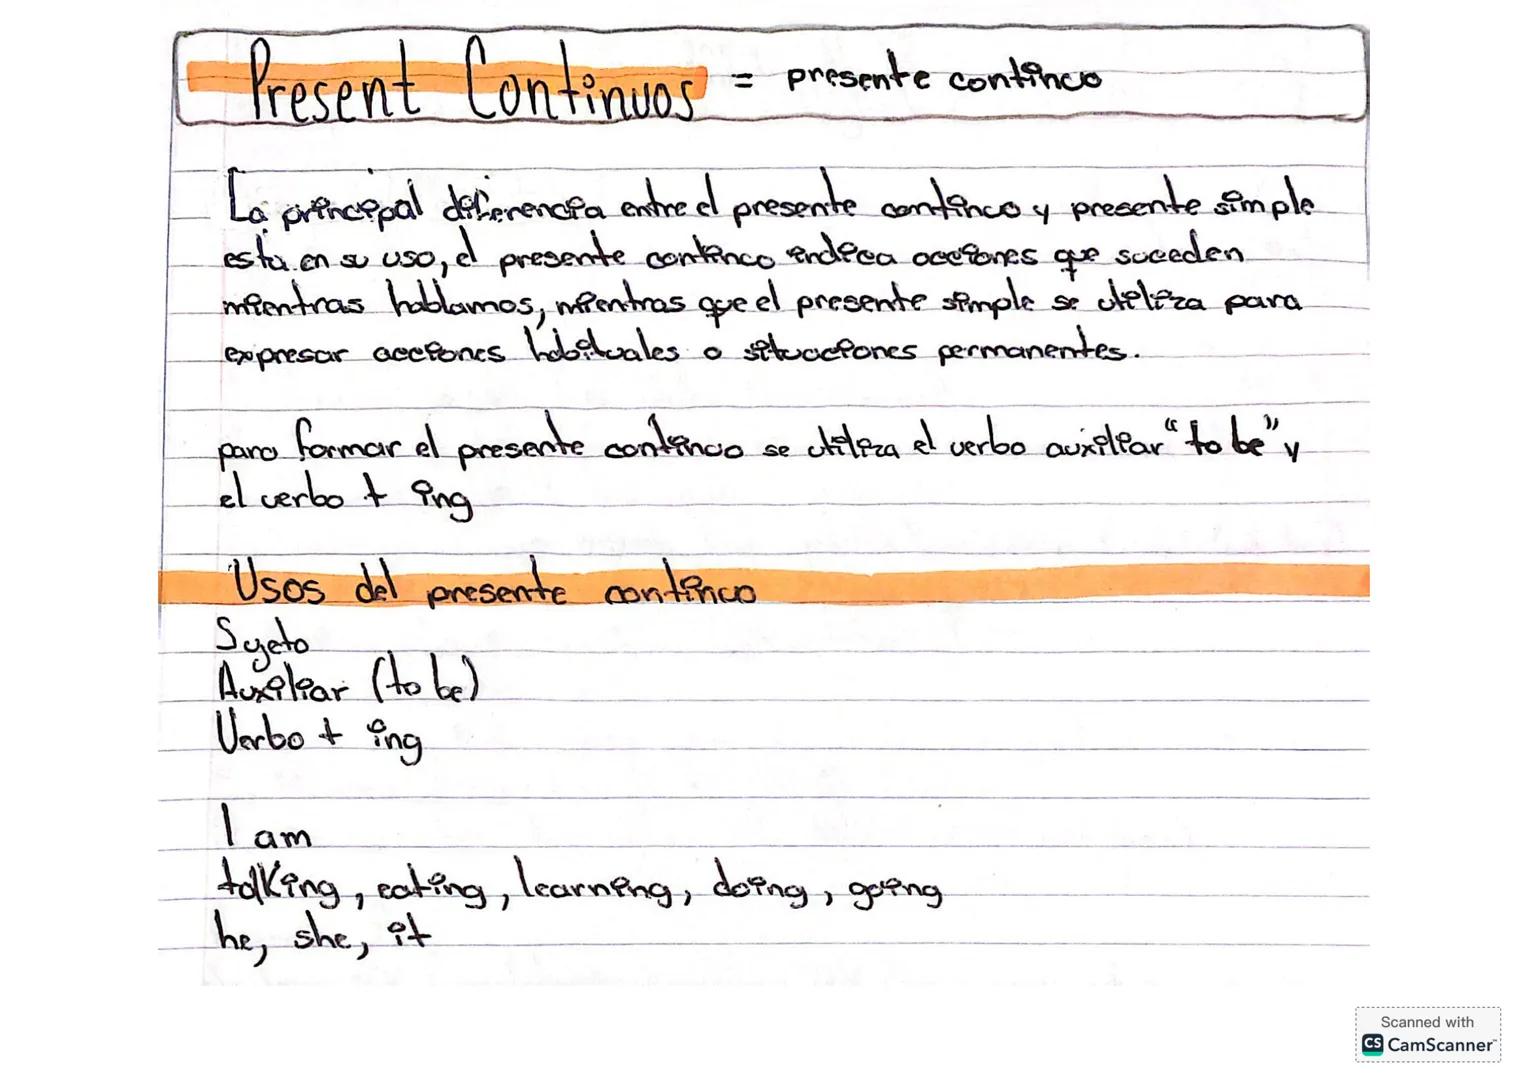 Present Continuos = presente continuo
La principal diferencia entre el presente continuo y presente simple
esta en su uso, el presente continuo indica acciones que suceden
mientras hablamos, mientras que el presente simple se utiliza para
expresar acciones habituales o situaciones permanentes.
para formar el presente continuo se utiliza el verbo auxiliar "to be" y
el verbo + ing
Usos del presente continuo
Sujeto
Auxiliar (to be)
Verbo + ing
I am
talking, eating, learning, doing, going
he, she, it
Scanned with
CS CamScanner